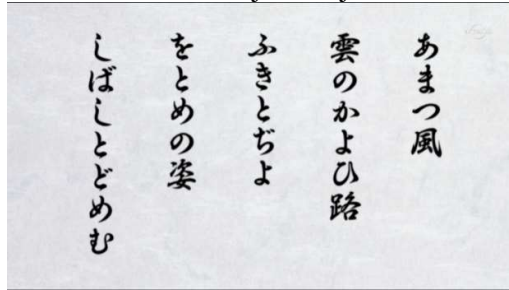 あまつ風
雲のかよひ路
ふきとぢよ
をとめの姿
しばしとどめむ